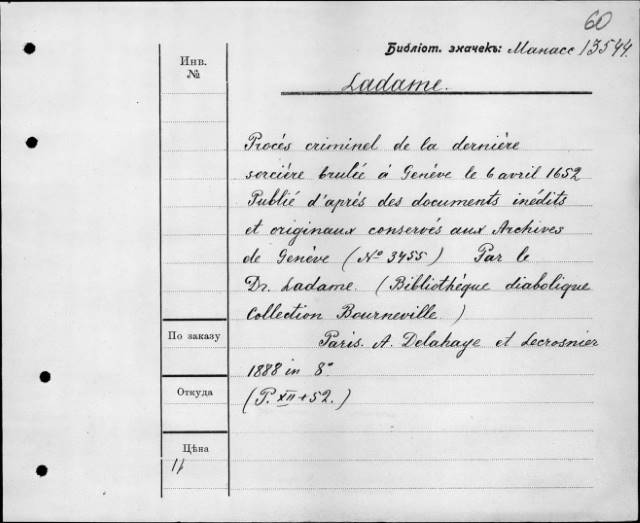 60
Библіот. значекъ: Манасс 13544.
Инв.
№
Ladame.
Procés criminel de la derniére
sorciére brulée á Genéve le 6 avril 1652
Publié d'aprés des documents inédits
et originaux conservés aux Archives
de Genéve (No 3455) Par le
Dr. Ladame. (Bibliothéque diabolique
Collection Bourneville)
По заказу
Paris. A. Delahaye et Lecrosnier
1888 in 8°
Откуда
(P. XII + 52.)
Цѣна